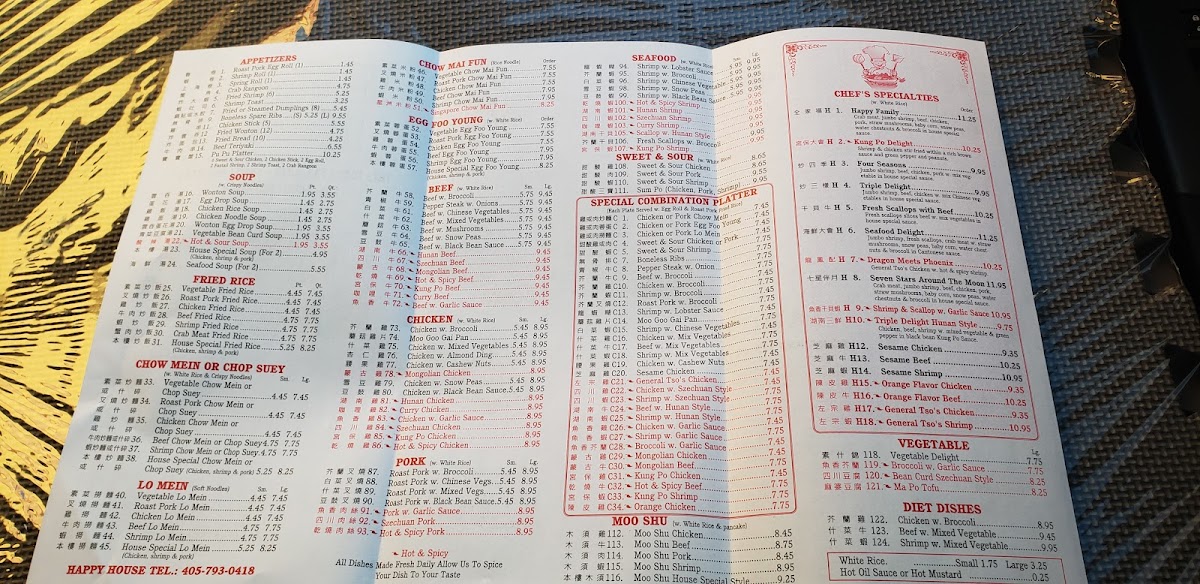 APPETIZERS
1. Roast Pork Egg Roll (1) 1.45
2. Shrimp Roll (1) 1.45
3. Spring Roll (1) 1.45
Crab Rangoon
Fried Shrimp (6) 5.25
Shrimp Toast 3.25
Fried or Steamed Dumplings (8) 5.45
Boneless Spare Ribs (S) 5.25 (L) 9.55
Chicken Stick (5) 5.55
Fried Wonton (12) 4.75
Fried Bread (10) 4.25
Beef Teriyaki 6.55
Pu Pu Platter 10.25
SOUP
(w. Crispy Noodles) Pt. Qt.
16. Wonton Soup 1.95 3.55
蛋花湯17. Egg Drop Soup 1.95 2.75
18. Chicken Rice Soup 1.95 2.75
19. Chicken Noodle Soup 1.95 2.75
20. Wonton Egg Drop Soup 1.95 3.55
21. Vegetable Bean Curd Soup 1.95 3.55
酸辣湯22. Hot & Sour Soup 1.95 3.55
本樓湯23. House Special Soup (For 2) 4.95
海鮮湯24. Seafood Soup (For 2) 5.55
FRIED RICE
Pt. Qt.
素菜炒飯25. Vegetable Fried Rice 4.45 7.45
叉燒炒飯26. Roast Pork Fried Rice 4.45 7.45
雞炒飯27. Chicken Fried Rice 4.45 7.45
牛肉炒飯28. Beef Fried Rice 4.75 7.75
蝦炒飯29. Shrimp Fried Rice 4.75 7.75
蟹肉炒飯30. Crab Meat Fried Rice 4.75 7.75
本樓炒飯31. House Special Fried Rice 5.25 8.25
(Chicken, shrimp & pork)
CHOW MEIN OR CHOP SUEY
(w. White Rice & Crispy Noodles) Sm. Lg.
素菜炒麵33. Vegetable Chow Mein or
或什碎 Chop Suey 4.45 7.45
叉燒炒麵34. Roast Pork Chow Mein or
或什碎 Chop Suey 4.45 7.45
雞炒麵35. Chicken Chow Mein or
或什碎 Chop Suey 4.45 7.45
牛肉炒麵或什碎36. Beef Chow Mein or Chop Suey 4.75 7.45
蝦炒麵或什碎37. Shrimp Chow Mein or Chop Suey 4.75 7.45
本樓炒麵38. House Special Chow Mein or
或什碎 Chop Suey (Chicken, shrimp & pork) 5.25 8.25
LO MEIN (Soft Noodles) Sm. Lg.
素菜撈麵40. Vegetable Lo Mein 4.45 7.45
叉燒撈麵41. Roast Pork Lo Mein 4.45 7.45
雞撈麵42. Chicken Lo Mein 4.45 7.45
牛肉撈麵43. Beef Lo Mein 4.45 7.45
蝦撈麵44. Shrimp Lo Mein 4.45 7.45
本樓撈麵45. House Special Lo Mein 5.25 8.25
(Chicken, shrimp & pork)
HAPPY HOUSE TEL.: 405-793-0418
CHOW MAI FUN (Rice Noodle) Order
素菜米粉46. Vegetable Chow Mai Fun 7.55
叉燒米粉47. Roast Pork Chow Mai Fun 7.55
雞米粉48. Chicken Chow Mai Fun 7.55
牛肉米粉49. Beef Chow Mai Fun 7.55
蝦米粉50. Shrimp Chow Mai Fun 7.55
星洲米粉51. Singapore Chow Mai Fun 8.25
EGG FOO YOUNG (w. White Rice) Order
素菜蓉蛋52. Vegetable Egg Foo Young 7.55
叉燒蓉蛋53. Roast Pork Egg Foo Young 7.55
雞蓉蛋54. Chicken Egg Foo Young 7.55
牛肉蓉蛋55. Beef Egg Foo Young 7.95
蝦蓉蛋56. Shrimp Egg Foo Young 7.95
本樓蓉蛋57. House Special Egg Foo Young 8.25
(Chicken, shrimp & pork)
BEEF (w. White Rice) Sm. Lg.
芥蘭牛58. Beef w. Broccoli 5.75 9.45
青椒牛59. Pepper Steak w. Onions 5.75 9.45
白菜牛60. Beef w. Chinese Vegetables 5.75 9.45
什菜牛61. Beef w. Mixed Vegetables 5.75 9.45
蘑菇牛62. Beef w. Mushrooms 5.75 9.45
雪豆牛63. Beef w. Snow Peas 5.75 9.45
豆豉牛65. Beef w. Black Bean Sauce 5.75 9.45
湖南牛66. Hunan Beef 9.45
四川牛67. Szechuan Beef 9.45
蒙古牛68. Mongolian Beef 9.45
乾燒牛69. Hot & Spicy Beef 9.45
宮保牛70. Kung Po Beef 9.45
咖喱牛71. Curry Beef 9.45
魚香牛72. Beef w. Garlic Sauce 9.45
CHICKEN (w. White Rice) Sm. Lg.
芥蘭雞73. Chicken w. Broccoli 5.45 8.95
蘑菇雞片74. Moo Goo Gai Pan 5.45 8.95
什菜雞75. Chicken w. Mixed Vegetables 5.45 8.95
杏仁雞76. Chicken w. Almond Ding 5.45 8.95
腰果雞77. Chicken w. Cashew Nuts 5.45 8.95
蒙古雞78. Mongolian Chicken 8.95
雪豆雞79. Chicken w. Snow Peas 5.45 8.95
豆豉雞80. Chicken w. Black Bean Sauce 5.45 8.95
湖南雞81. Hunan Chicken 8.95
咖喱雞82. Curry Chicken 8.95
魚香雞83. Chicken w. Garlic Sauce 8.95
四川雞84. Szechuan Chicken 8.95
宮保雞85. Kung Po Chicken 8.95
乾燒雞86. Hot & Spicy Chicken 8.95
PORK (w. White Rice) Sm. Lg.
芥蘭叉燒87. Roast Pork w. Broccoli 5.45 8.95
白菜叉燒88. Roast Pork w. Chinese Vegs. 5.45 8.95
什菜叉燒89. Roast Pork w. Mixed Vegs. 5.45 8.95
豆豉叉燒90. Roast Pork w. Black Bean Sauce 5.45 8.95
魚香肉絲91. Pork w. Garlic Sauce 8.95
四川肉絲92. Szechuan Pork 8.95
乾燒肉絲93. Hot & Spicy Pork 8.95
Hot & Spicy
All Dishes Made Fresh Daily Allow Us To Spice
Your Dish To Your Taste
SEAFOOD (w. White Rice) Sm. Lg.
龍蝦糊94. Shrimp w. Lobster Sauce 5.95 9.95
芥蘭蝦95. Shrimp w. Broccoli 5.95 9.95
白菜蝦96. Shrimp w. Chinese Vegetables 5.95 9.95
雪豆蝦98. Shrimp w. Snow Peas 5.95 9.95
豆豉蝦99. Shrimp w. Black Bean Sauce 5.95 9.95
乾燒蝦100. Hot & Spicy Shrimp 9.95
湖南蝦101. Hunan Shrimp 9.95
四川蝦102. Szechuan Shrimp 9.95
咖喱蝦104. Curry Shrimp 9.95
湖南干貝105. Scallop w. Hunan Style
芥蘭干貝106. Fresh Scallops w. Broccoli
宮保蝦107. Kung Po Shrimp 9.95
SWEET & SOUR
甜酸雞108. Sweet & Sour Chicken 8.65
甜酸肉109. Sweet & Sour Pork 8.65
甜酸蝦110. Sweet & Sour Shrimp
甜酸三寶111. Sam Po (Chicken, Pork, Shrimp) 9.95
SPECIAL COMBINATION PLATTER
(Each Plate Served w. Egg Roll & Roast Pork Fried Rice)
雞或肉炒麵C 1. Chicken or Pork Chow Mein 7.45
雞或肉蓉蛋C 2. Chicken or Pork Egg Foo Young 7.45
雞或肉撈麵C 3. Chicken or Pork Lo Mein 7.45
甜酸雞或肉C 4. Sweet & Sour Chicken or Pork 7.45
甜酸蝦C 5. Sweet & Sour Shrimp 7.45
無骨排C 7. Boneless Ribs
青椒牛C 8. Pepper Steak w. Onion
芥蘭牛C 9. Beef w. Broccoli
芥蘭雞C10. Chicken w. Broccoli
芥蘭蝦C11. Shrimp w. Broccoli
芥蘭叉燒C12. Roast Pork w. Broccoli
龍蝦糊C13. Shrimp w. Lobster Sauce
蘑菇雞片C14. Moo Goo Gai Pan
白菜蝦C15. Shrimp w. Chinese Vegetables
什菜雞C16. Chicken w. Mix Vegetables
什菜牛C17. Beef w. Mix Vegetables
什菜蝦C18. Shrimp w. Mix Vegetables
腰果雞C19. Chicken w. Cashew Nuts
芝麻雞C20. Sesame Chicken
左宗雞C21. General Tso's Chicken
四川雞C22. Chicken w. Szechuan Style
四川牛C23. Beef w. Szechuan Style
湖南牛C24. Beef w. Hunan Style
湖南蝦C25. Shrimp w. Hunan Style
魚香雞C26. Chicken w. Garlic Sauce
魚香蝦C27. Shrimp w. Garlic Sauce
魚香芥蘭C28. Broccoli w. Garlic Sauce
蒙古雞C29. Mongolian Chicken
蒙古牛C30. Mongolian Beef
宮保雞C31. Kung Po Chicken
乾燒牛C32. Hot & Spicy Beef
宮保蝦C33. Kung Po Shrimp 7.75
陳皮雞C34. Orange Chicken 7.75
MOO SHU (w. White Rice & pancake)
木須雞112. Moo Shu Chicken 8.45
木須牛113. Moo Shu Beef 8.75
木須肉114. Moo Shu Pork 8.45
木須蝦115. Moo Shu Shrimp
本樓木須116. Moo Shu House Special Style 9.25
CHEF'S SPECIALTIES
(w. White Rice) Order
全家福H 1. Happy Family 11.25
Crab meat, jumbo shrimp, beef, chicken,
pork, straw mushrooms, baby corn, snow peas,
water chestnuts & broccoli in house special
sauce.
宮保大會H 2. Kung Po Delight 10.25
Shrimp & chicken stir fried within a rich brown
sauce and green pepper and peanuts.
炒四季H 3. Four Seasons 9.95
Chicken, beef, shrimp, pork w. mix vege-
tables in house special sauce.
炒三樣H 4. Triple Delight 11.95
Jumbo shrimp, chicken, beef w. mix vege-
tables in house special sauce.
干貝牛H 5. Fresh Scallops with Beef 10.25
Fresh scallops sliced beef w. mix vegetables in
house special sauce.
海鮮大會H 6. Seafood Delight 11.25
Jumbo shrimp, fresh scallops, crab meat w. straw
mushrooms, snow peas, baby corn, water chest-
nuts & broccoli in Cantonese sauce.
龍鳳配H 7. Dragon Meets Phoenix 10.25
General Tso's Chicken w. hot & spicy shrimp
七星伴月H 8. Seven Stars Around The Moon 11.95
Crab meat, jumbo shrimp, beef, chicken, pork,
straw mushrooms, baby corn, snow peas, water
chestnuts & broccoli in house special sauce
魚香干貝蝦H 9. Shrimp & Scallop w. Garlic Sauce 10.95
湖南三鮮H10. Triple Delight Hunan Style 9.75
Chicken, beef, shrimp w. mixed vegetable & green
pepper in black bean Kung Po Sauce.
芝麻雞H12. Sesame Chicken 9.35
芝麻牛H13. Sesame Beef 10.25
芝麻蝦H14. Sesame Shrimp 10.95
陳皮雞H15. Orange Flavor Chicken 9.35
陳皮牛H16. Orange Flavor Beef 10.25
左宗雞H17. General Tso's Chicken 9.35
左宗蝦H18. General Tso's Shrimp 10.95
VEGETABLE
(w. White Rice) Lg.
素什錦118. Vegetable Delight 7.75
魚香芥蘭119. Broccoli w. Garlic Sauce 7.75
四川豆腐120. Bean Curd Szechuan Style 8.25
麻婆豆腐121. Ma Po Tofu 8.25
DIET DISHES
芥蘭雞122. Chicken w. Broccoli 8.95
什菜牛123. Beef w. Mixed Vegetable 9.95
什菜蝦124. Shrimp w. Mixed Vegetable 9.95
White Rice. Small 1.75 Large 3.25
Hot Oil Sauce or Hot Mustard 0.25